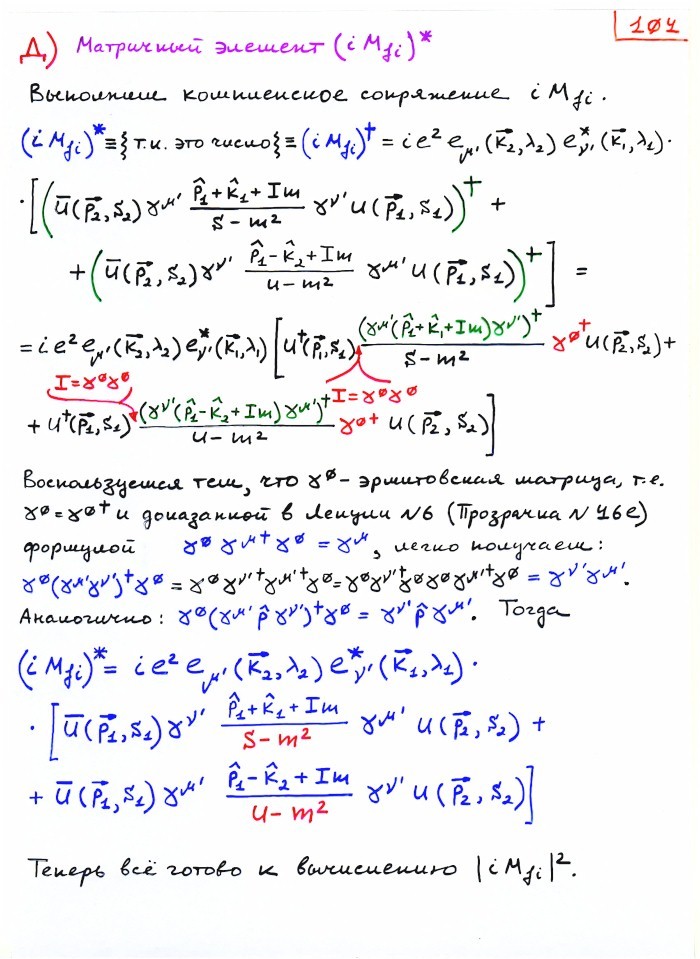 101
Д) Матричный элемент (i M_fi)*
Выполним комплексное сопряжение i M_fi.
(i M_fi)* ≡ {т.к. это число} ≡ (i M_fi)† = i e² e_μ'(k⃗₂, λ₂) e*_ν'(k⃗₁, λ₁)·
·[(ū(p⃗₂, s₂) γ^μ' (p̂₁ + k̂₁ + Im)/(s − m²) γ^ν' u(p⃗₁, s₁))† +
+ (ū(p⃗₂, s₂) γ^ν' (p̂₁ − k̂₂ + Im)/(u − m²) γ^μ' u(p⃗₁, s₁))†] =
= i e² e_μ'(k⃗₂, λ₂) e*_ν'(k⃗₁, λ₁) [u†(p⃗₁, s₁) (γ^μ'(p̂₁ + k̂₁ + Im)γ^ν')†/(s − m²) γ⁰† u(p⃗₂, s₂) +
I = γ⁰γ⁰ I = γ⁰γ⁰
+ u†(p⃗₁, s₁) (γ^ν'(p̂₁ − k̂₂ + Im)γ^μ')†/(u − m²) γ⁰† u(p⃗₂, s₂)]
Воспользуемся тем, что γ⁰ - эрмитовская матрица, т.е.
γ⁰ = γ⁰† и доказанной в Лекции №6 (Прозрачка №16е)
формулой γ⁰ γ^μ† γ⁰ = γ^μ, легко получаем:
γ⁰(γ^μ'γ^ν')†γ⁰ = γ⁰γ^ν'†γ^μ'†γ⁰ = γ⁰γ^ν'†γ⁰γ⁰γ^μ'†γ⁰ = γ^ν'γ^μ'.
Аналогично: γ⁰(γ^μ' p̂ γ^ν')†γ⁰ = γ^ν' p̂ γ^μ'. Тогда
(i M_fi)* = i e² e_μ'(k⃗₂, λ₂) e*_ν'(k⃗₁, λ₁)·
·[ū(p⃗₁, s₁) γ^ν' (p̂₁ + k̂₁ + Im)/(s − m²) γ^μ' u(p⃗₂, s₂) +
+ ū(p⃗₁, s₁) γ^μ' (p̂₁ − k̂₂ + Im)/(u − m²) γ^ν' u(p⃗₂, s₂)]
Теперь всё готово к вычислению |i M_fi|².